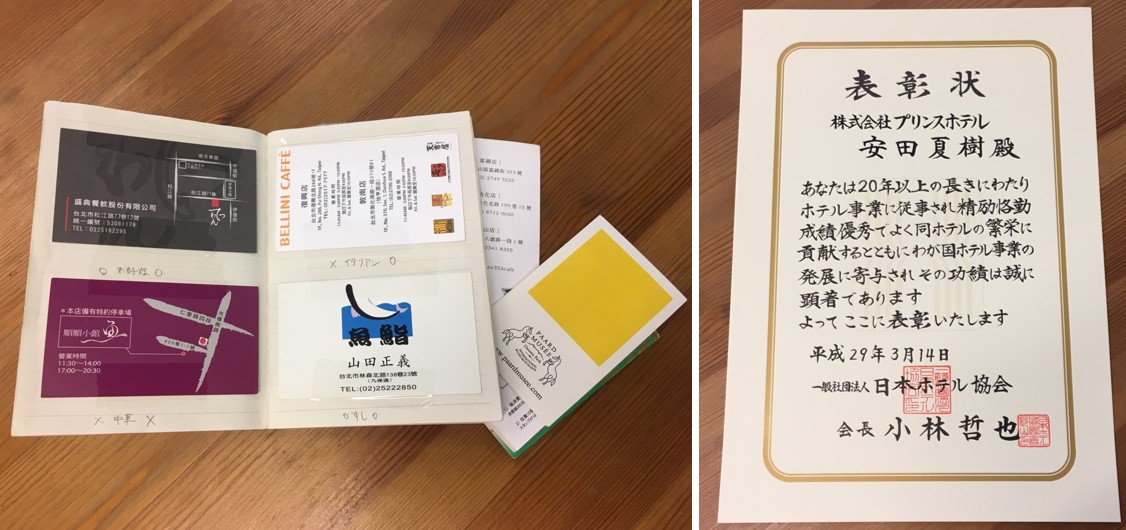 南京東路
伊通街
松江路
松江路77巷
伊通街
盛興餐飲股份有限公司
台北市松江路77巷12號
統一編號：53081178
TEL：0225182295
BELLINI CAFFÈ
復興店
TEL:(02)2517-7577
敦南店
山田正義
魚鮨
台北市林森北路138巷23號
(九條通)
TEL:(02)25222850
*本店備有特約停車場
仁愛路四段
光復南路
順順小館
營業時間
11:30～14:00
17:00～20:30
× イタリアン ○
× 中華 ×
○ すし ○
富錦店
PAARD
MUSÉE
www.paardmusee.com
表彰状
株式会社プリンスホテル
安田夏樹殿
あなたは20年以上の長きにわたり
ホテル事業に従事され精励恪勤
成績優秀でよく同ホテルの繁栄に
貢献するとともにわが国ホテル事業の
発展に寄与されその功績は誠に
顕著であります
よってここに表彰いたします
平成29年3月14日
一般社団法人 日本ホテル協会
会長 小林哲也